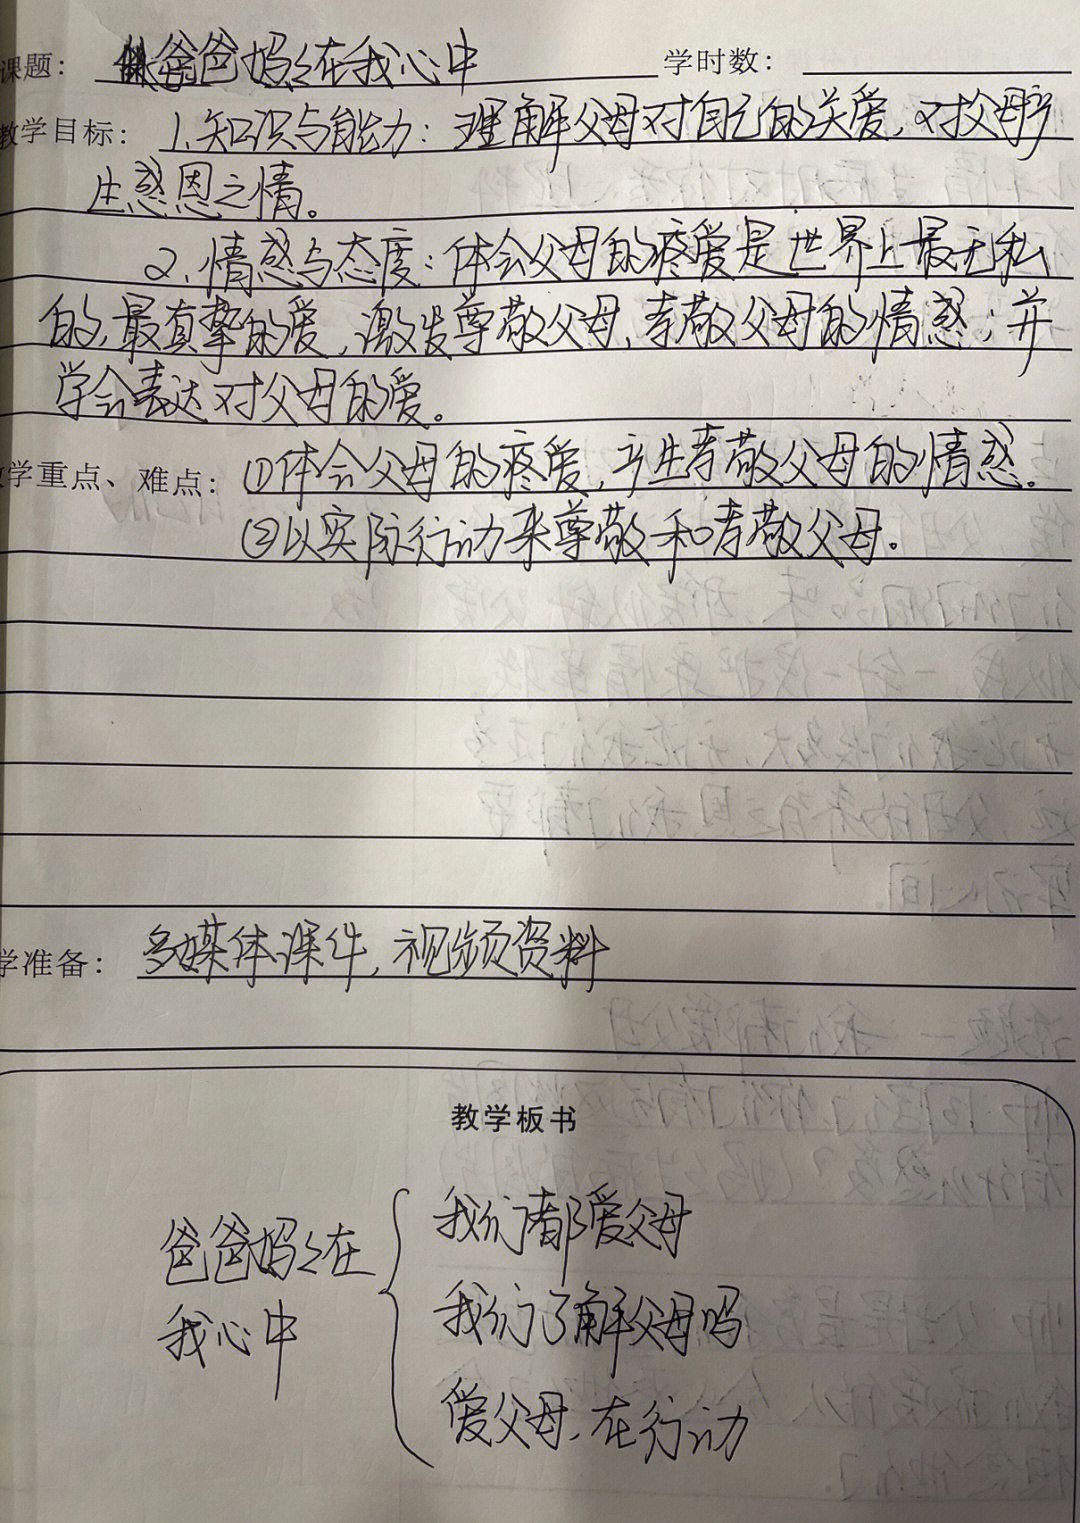 课题：爸爸妈妈在我心中 学时数：
教学目标：1.知识与能力：理解父母对自己的关爱，对父母产
生感恩之情。
2.情感与态度：体会父母的疼爱是世界上最无私
的，最真挚的爱，激发尊敬父母，孝敬父母的情感；并
学会表达对父母的爱。
学重点、难点：①体会父母的疼爱，产生孝敬父母的情感。
②以实际行动来尊敬和孝敬父母。
学准备：多媒体课件，视频资料
教学板书
爸爸妈妈在
我心中
我们都爱父母
我们了解父母吗
爱父母，在行动